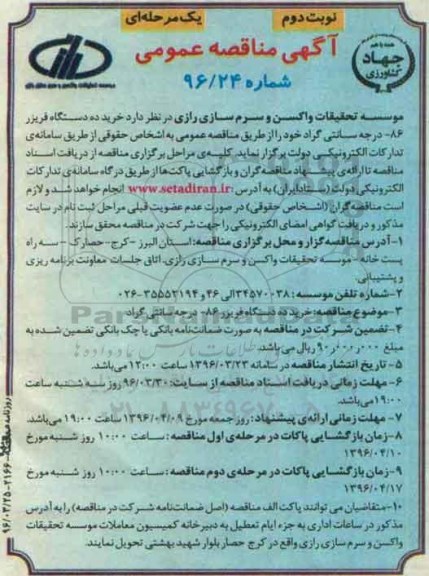 نوبت دوم
یک مرحله‌ای
آگهی مناقصه عمومی
شماره ۹۶/۲۴
همه با هم
جهاد
کشاورزی
موسسه تحقیقات واکسن و سرم سازی رازی در نظر دارد خرید ده دستگاه فریزر
۸۶- درجه سانتی گراد خود را از طریق مناقصه عمومی به اشخاص حقوقی از طریق سامانه‌ی
تدارکات الکترونیکی دولت برگزار نماید. کلیه‌ی مراحل برگزاری مناقصه از دریافت اسناد
مناقصه تا ارائه‌ی پیشنهاد مناقصه‌گران و بازگشایی پاکت‌ها از طریق درگاه سامانه‌ی تدارکات
الکترونیکی دولت (ستاد ایران) به آدرس: www.setadiran.ir انجام خواهد شد و لازم
است مناقصه‌گران (اشخاص حقوقی) در صورت عدم عضویت قبلی مراحل ثبت نام در سایت
مذکور و دریافت گواهی امضای الکترونیکی را جهت شرکت در مناقصه محقق سازند.
۱- آدرس مناقصه گزار و محل برگزاری مناقصه: استان البرز - کرج - حصارک - سه راه
پست خانه - موسسه تحقیقات واکسن و سرم سازی رازی، اتاق جلسات معاونت برنامه ریزی
و پشتیبانی.
۲- شماره تلفن موسسه: ۳۴۵۷۰۰۳۸ الی ۴۶ و ۳۵۵۵۲۱۹۴-۰۲۶
۳- موضوع مناقصه: خرید ده دستگاه فریزر ۸۶- درجه سانتی گراد.
۴- تضمین شرکت در مناقصه به صورت ضمانت‌نامه بانکی یا چک بانکی تضمین شده به
مبلغ ۹۰۰/۰۰۰/۰۰۰ ریال می باشد.
۵- تاریخ انتشار مناقصه در سامانه ۱۳۹۶/۰۳/۲۳ ساعت ۱۲:۰۰ می‌باشد.
۶- مهلت زمانی دریافت اسناد مناقصه از سایت: ۹۶/۰۳/۳۰ روز سه شنبه ساعت
۱۹:۰۰ می‌باشد.
۷- مهلت زمانی ارائه‌ی پیشنهاد: روز جمعه مورخ ۱۳۹۶/۰۴/۰۹ ساعت ۱۹:۰۰ می‌باشد.
۸- زمان بازگشایی پاکات در مرحله‌ی اول مناقصه: ساعت ۱۰:۰۰ روز شنبه مورخ
۱۳۹۶/۰۴/۱۰
۹- زمان بازگشایی پاکات در مرحله‌ی دوم مناقصه: ساعت ۱۰:۰۰ روز شنبه مورخ
۱۳۹۶/۰۴/۱۷
۱۰- متقاضیان می توانند پاکت الف مناقصه (اصل ضمانت‌نامه شرکت در مناقصه) را به آدرس
مذکور در ساعات اداری به جزء ایام تعطیل به دبیرخانه کمیسیون معاملات موسسه تحقیقات
واکسن و سرم سازی رازی واقع در کرج حصار بلوار شهید بهشتی تحویل نمایند.